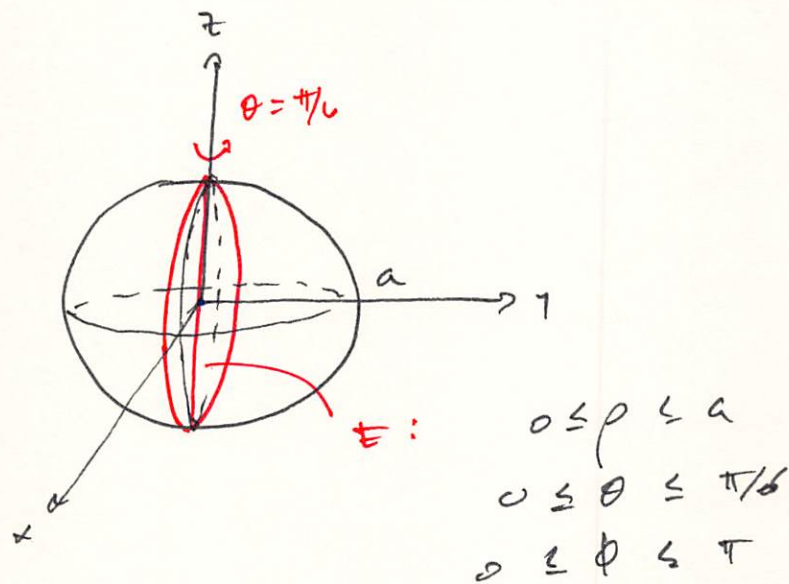 z
θ = π/6
a
y
E :
0 ≤ ρ ≤ a
0 ≤ θ ≤ π/6
0 ≤ ϕ ≤ π
x